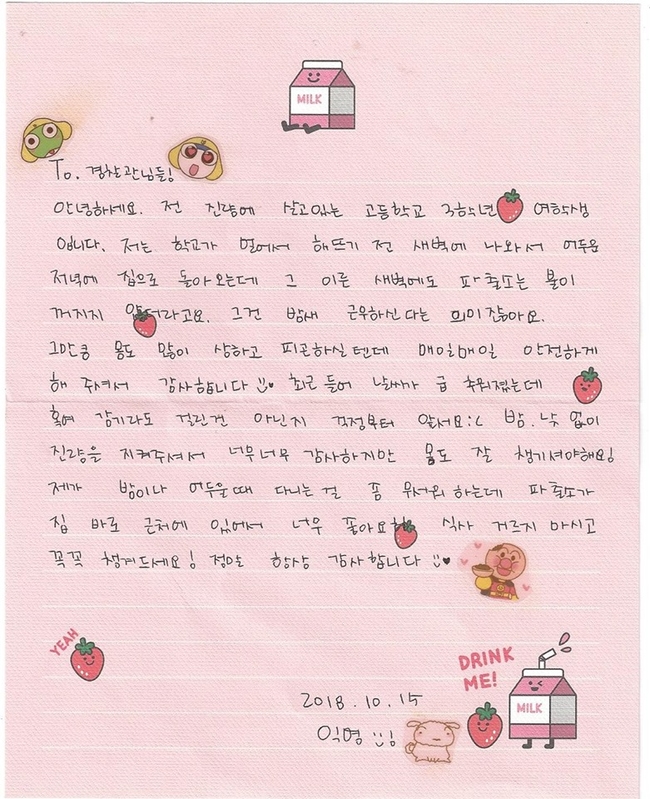 MILK
To. 경찰관님들!
안녕하세요. 전 진량에 살고있는 고등학교 3학년 여학생
입니다. 저는 학교가 멀어서 해뜨기 전 새벽에 나와서 어두운
저녁에 집으로 돌아오는데 그 이른 새벽에도 파출소는 불이
꺼지지 않더라고요. 그건 밤새 근무하신다는 의미잖아요.
그만큼 몸도 많이 상하고 피곤하실텐데 매일매일 안전하게
해 주셔서 감사합니다 :)♥ 최근 들어 날씨가 급 추워졌는데
혹여 감기라도 걸린건 아닌지 걱정부터 앞서요:( 밤.낮 없이
진량을 지켜주셔서 너무너무 감사하지만 몸도 잘 챙기셔야해요!
제가 밤이나 어두울때 다니는 걸 좀 무서워 하는데 파출소가
집 바로 근처에 있어서 너무 좋아요 식사 거르지 마시고
꼭꼭 챙겨드세요! 정말 항상 감사합니다 :)♥
YEAH
DRINK
ME!
MILK
2018.10.15
익명 :)!